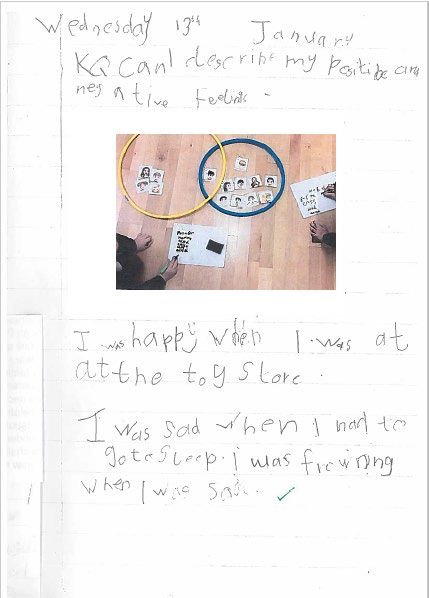 Wednesday 13th January
KQ Can I describe my positive and
negative feelings.
I was happy when I was at
at the toy store.
I was sad when I had to
go to sleep. i was frowning
when I was sad.